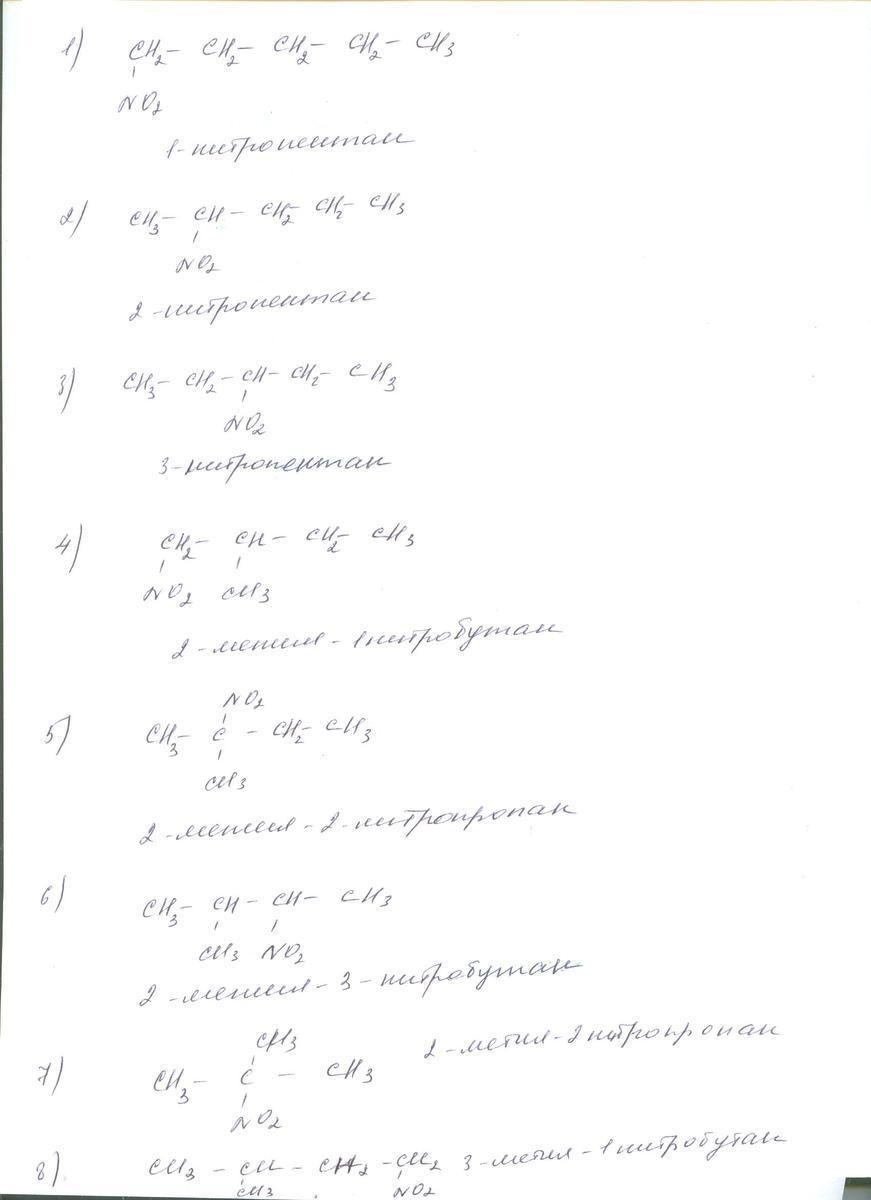 1) CH2- CH2- CH2- CH2- CH3
NO2
1-нитропентан
2) CH3- CH- CH2 CH2- CH3
NO2
2-нитропентан
3) CH3- CH2- CH- CH2- CH3
NO2
3-нитропентан
4) CH2- CH- CH2- CH3
NO2 CH3
2-метил-1нитробутан
NO2
5) CH3- C - CH2- CH3
CH3
2-метил-2-нитропропан
6) CH3- CH- CH- CH3
CH3 NO2
2-метил-3-нитробутан
CH3 2-метил-2нитропропан
7) CH3- C - CH3
NO2
8) CH3 - CH - CH2 - CH2 3-метил-1нитробутан
CH3 NO2